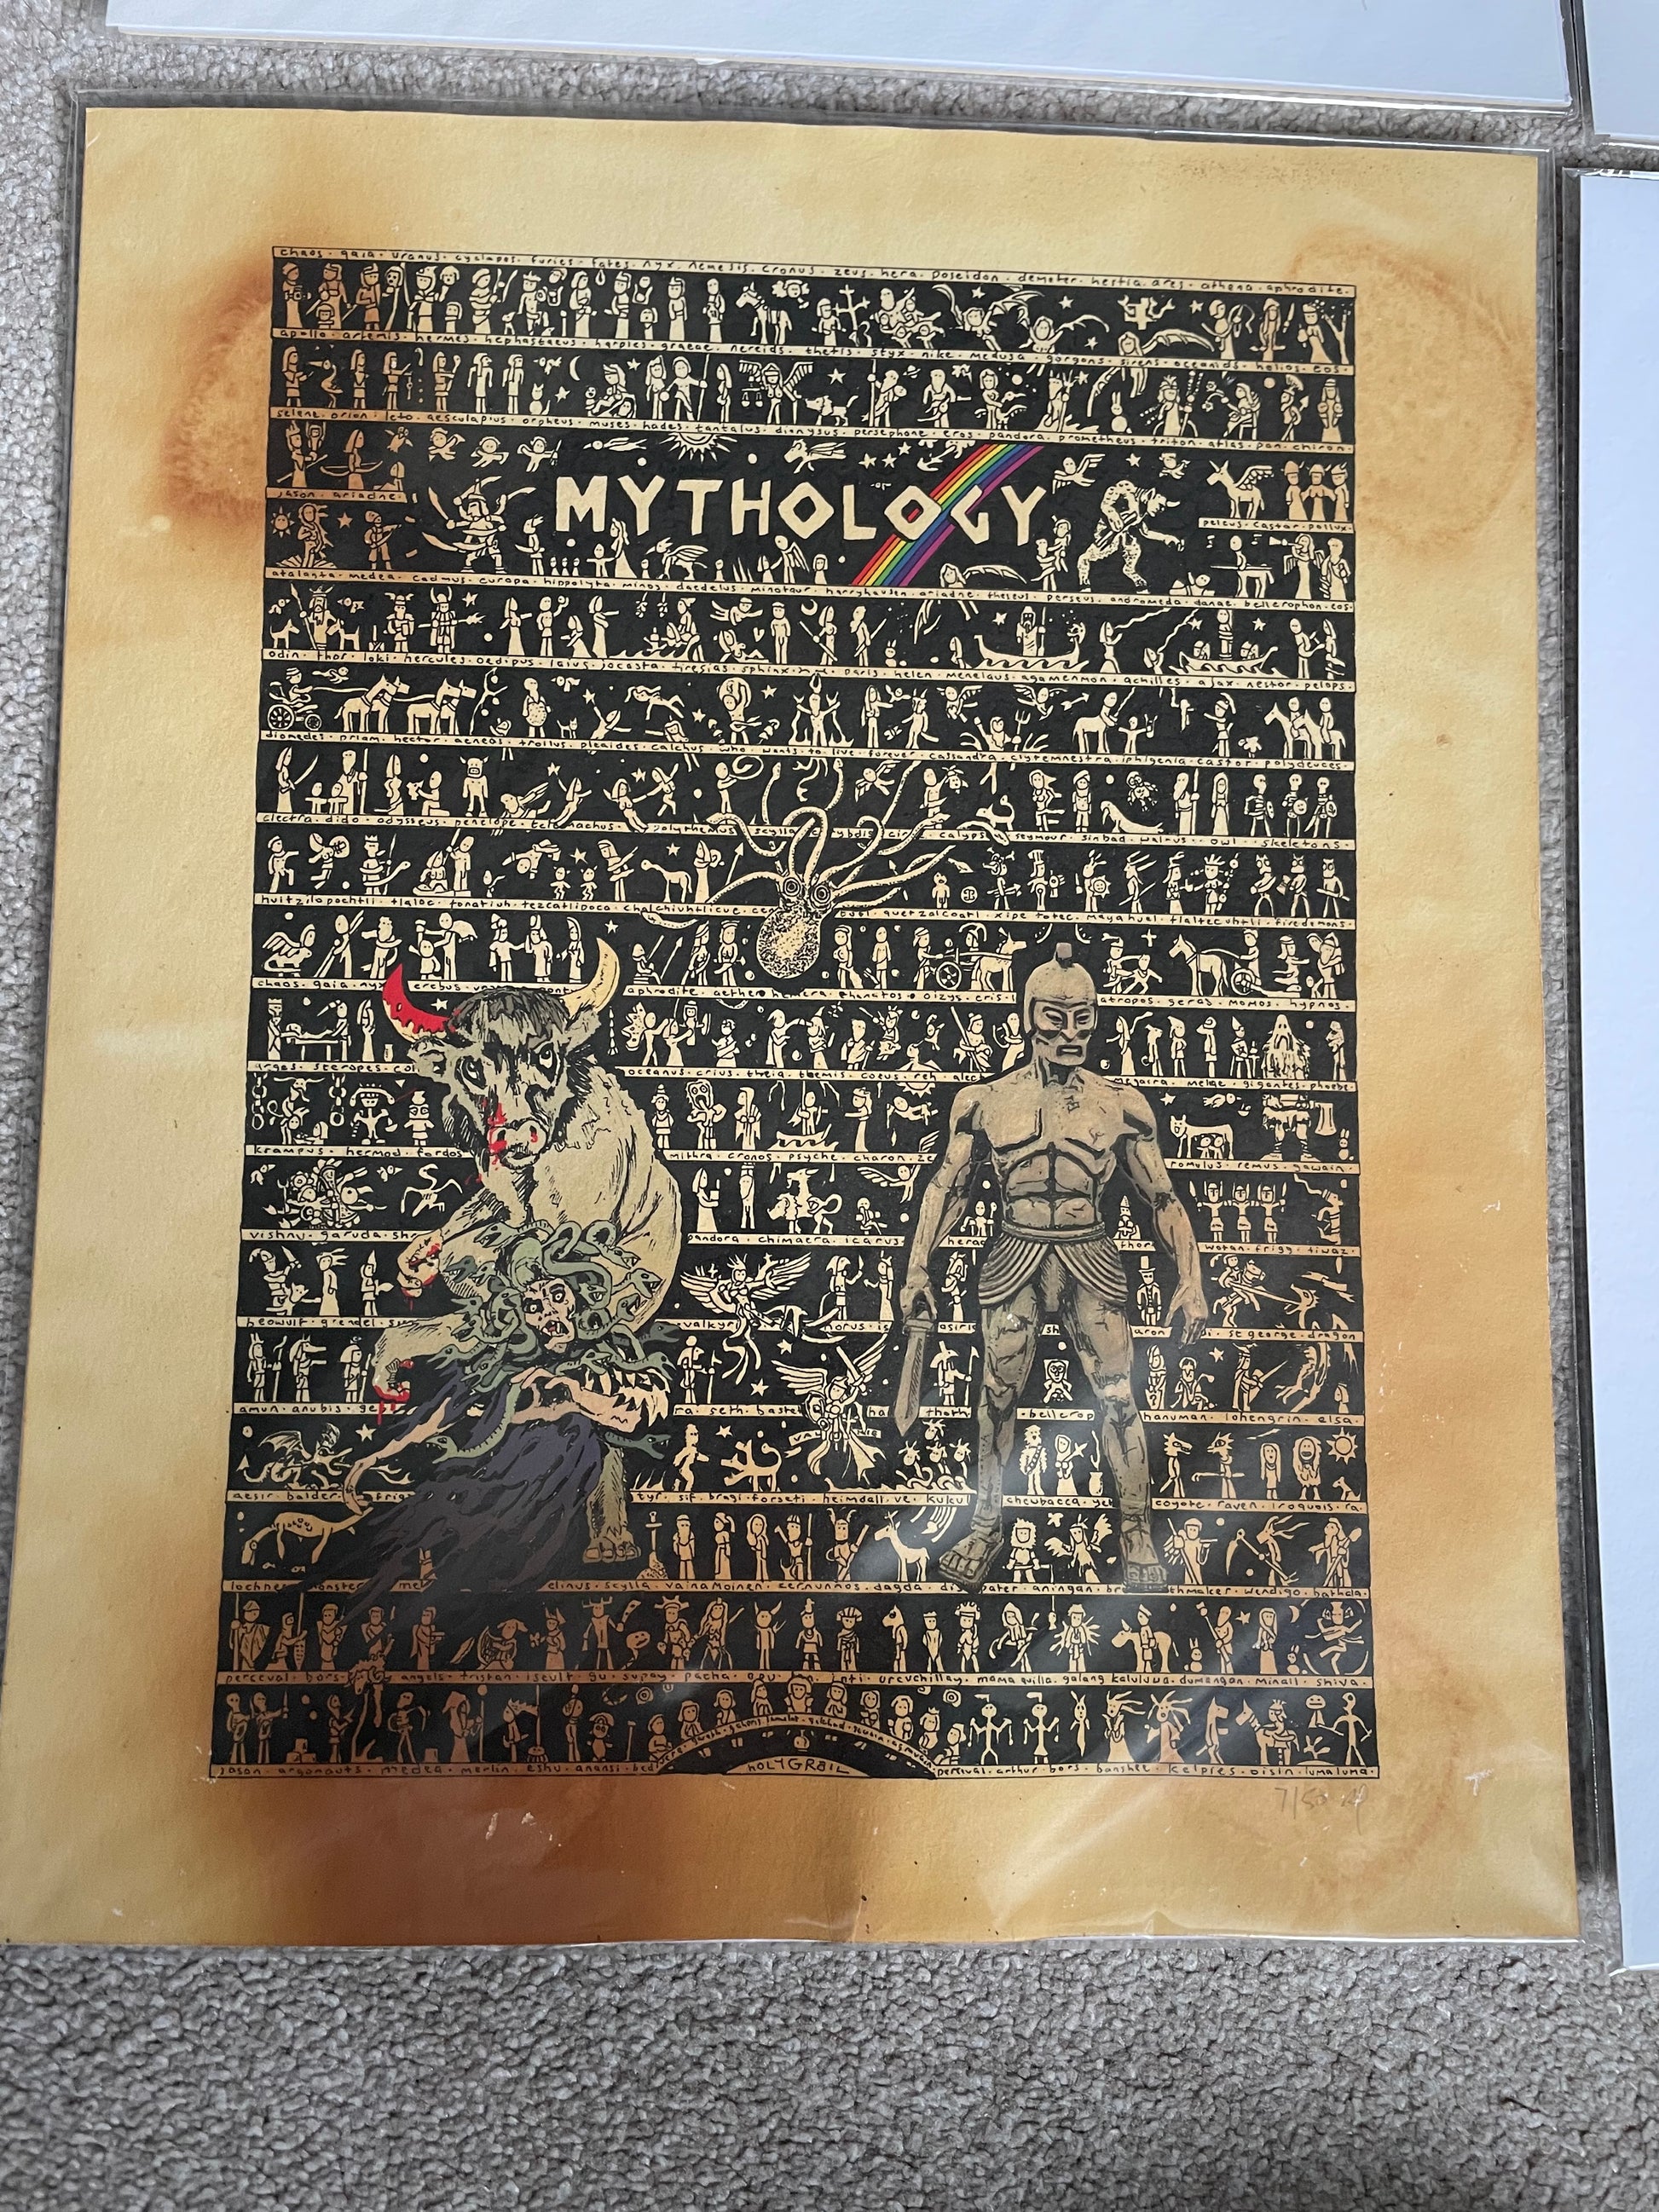 chaos · gaia · uranus · cyclopes · furies · fates · nyx · nemesis · cronus · zeus · hera · poseidon · demeter · hestia · ares · athena · aphrodite ·
apollo · artemis · hermes · hephastaeus · harpies · graeae · nereids · thetis · styx · nike · medusa · gorgons · sirens · oceanids · helios · eos ·
selene · orion · leto · aesculapius · orpheus · muses · hades · tantalus · dionysus · persephone · eros · pandora · prometheus · triton · atlas · pan · chiron ·
MYTHOLOGY
jason · ariadne ·
peleus · castor · pollux ·
atalanta · medea · cadmus · europa · hippolyta · minos · daedelus · minotaur · harryhausen · ariadne · theseus · perseus · andromeda · danae · bellerophon · eos ·
odin · thor · loki · hercules · oedipus · laius · jocasta · tiresias · sphinx · paris · helen · menelaus · agamemnon · achilles · ajax · nestor · pelops ·
diomedes · priam · hector · aeneas · troilus · pleaides · calchus · who · wants · to · live · forever · cassandra · clytemnestra · iphigenia · castor · polydeuces ·
electra · dido · odysseus · penelope · telemachus · polythemus · scylla · calyps · seymour · sinbad · walrus · owl · skeletons ·
huitzilopochtli · tlaloc · tonatiuh · tezcatlipoca · chalchiuhtlicue · quetzalcoatl · xipe totec · mayahuel · tlaltecuhtli · firedemons ·
chaos · gaia · nyx · erebus · aphrodite · aether · hemera · thanatos · oizys · eris · atropos · geras · momos · hypnos ·
argos · steropes · oceanus · crius · theia · themis · coeus · megaira · melqe · gigantes · phoebe
krampus · hermod · mithra · cronos · psyche · charon · romulus · remus · gawain ·
vishnu · garuda · pandora · chimaera · icarus · thor · wotan · frigg · tiwaz ·
beowulf · grendel · valkyr · horus · st george · dragon
amun · anubis · ra · seth · thoth · bellerop · hanuman · lohengrin · elsa ·
aesir · balder · tyr · sif · bragi · forseti · heimdall · ve · kukul · chewbacca · coyote · raven · iroquois · ra ·
lochness monster · scylla · vainamoinen · cernunnos · dagda · aningan · wendigo · bathala ·
perceval · bors · angels · tristan · iseult · gu · supay · pacha · inti · urcuchillay · mama quilla · galang kaluluwa · dumangan · minali · shiva ·
jason · argonauts · medea · merlin · eshu · anansi · percival · arthur · bors · banshee · kelpies · oisin · lumaluma ·
HOLYGRAIL
7/50